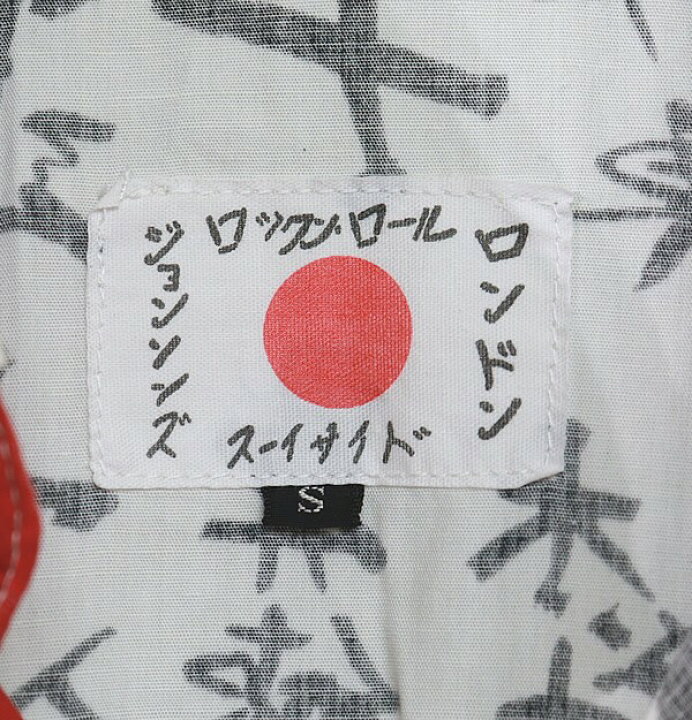 ロックン・ロール
ロンドン
ジョンソンズ
スーイサイド
S